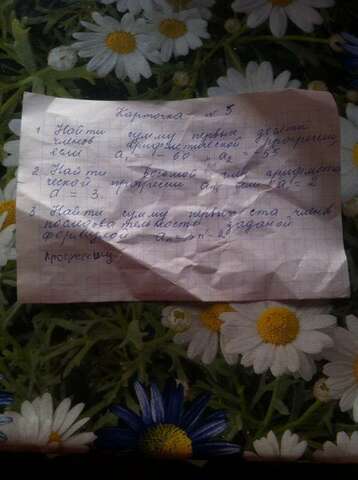 Карточка № 5
1. Найти сумму первых десяти
членов арифметической прогрессии,
если a₁ = - 60, a₂ = - 55
2. Найти восьмой член арифмети-
ческой прогрессии если a₁ = 2
d = 3.
3. Найти сумму первых ста членов
последовательности, заданой
формулой
Прогрессии